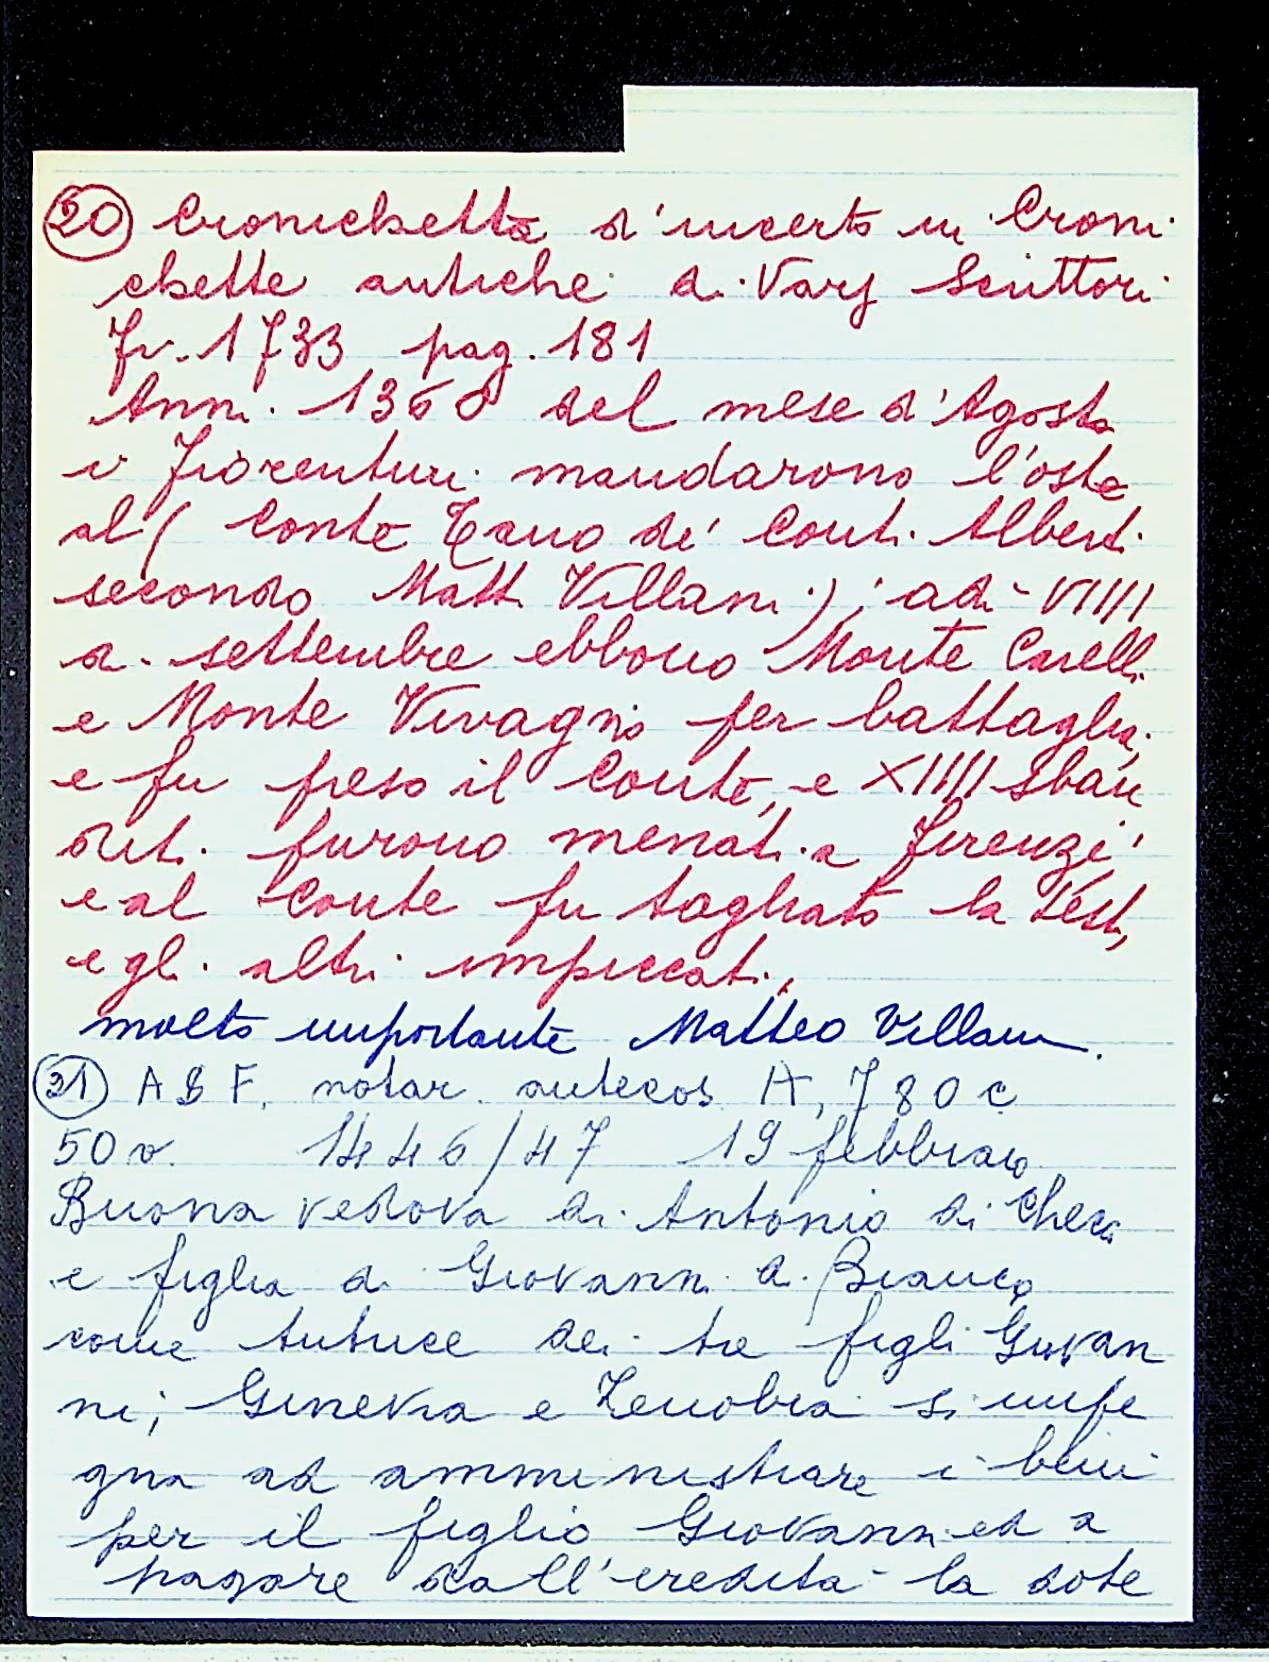 20 Cronichetta d'incerto in Croni
chette antiche di Varj Scrittori
Fir. 1733 pag. 181
Ann. 1360 del mese d'Agosto
i Fiorentini mandarono l'oste
al (Conte Tano de' Conti Alberti
secondo Matt. Villani); adì VIIII
di settembre ebbono Monte Carelli
e Monte Vivagni per battaglia,
e fu preso il Conte, e XIIII sban
diti furono menati a Firenze
e al Conte fu tagliato la test,
e gli altri impiccati,
molto importante Matteo Villani.
21 ASF. notar. antecos A, 780 c
50 v. 1446/47 19 febbraio
Buona vedova di Antonio di Checo
e figlia di Giovanni di Bianco
come tutrice dei tre figli Giovan
ni, Ginevra e Zenobia si impe
gna ad amministrare i beni
per il figlio Giovanni ed a
pagare dall'eredità la dote